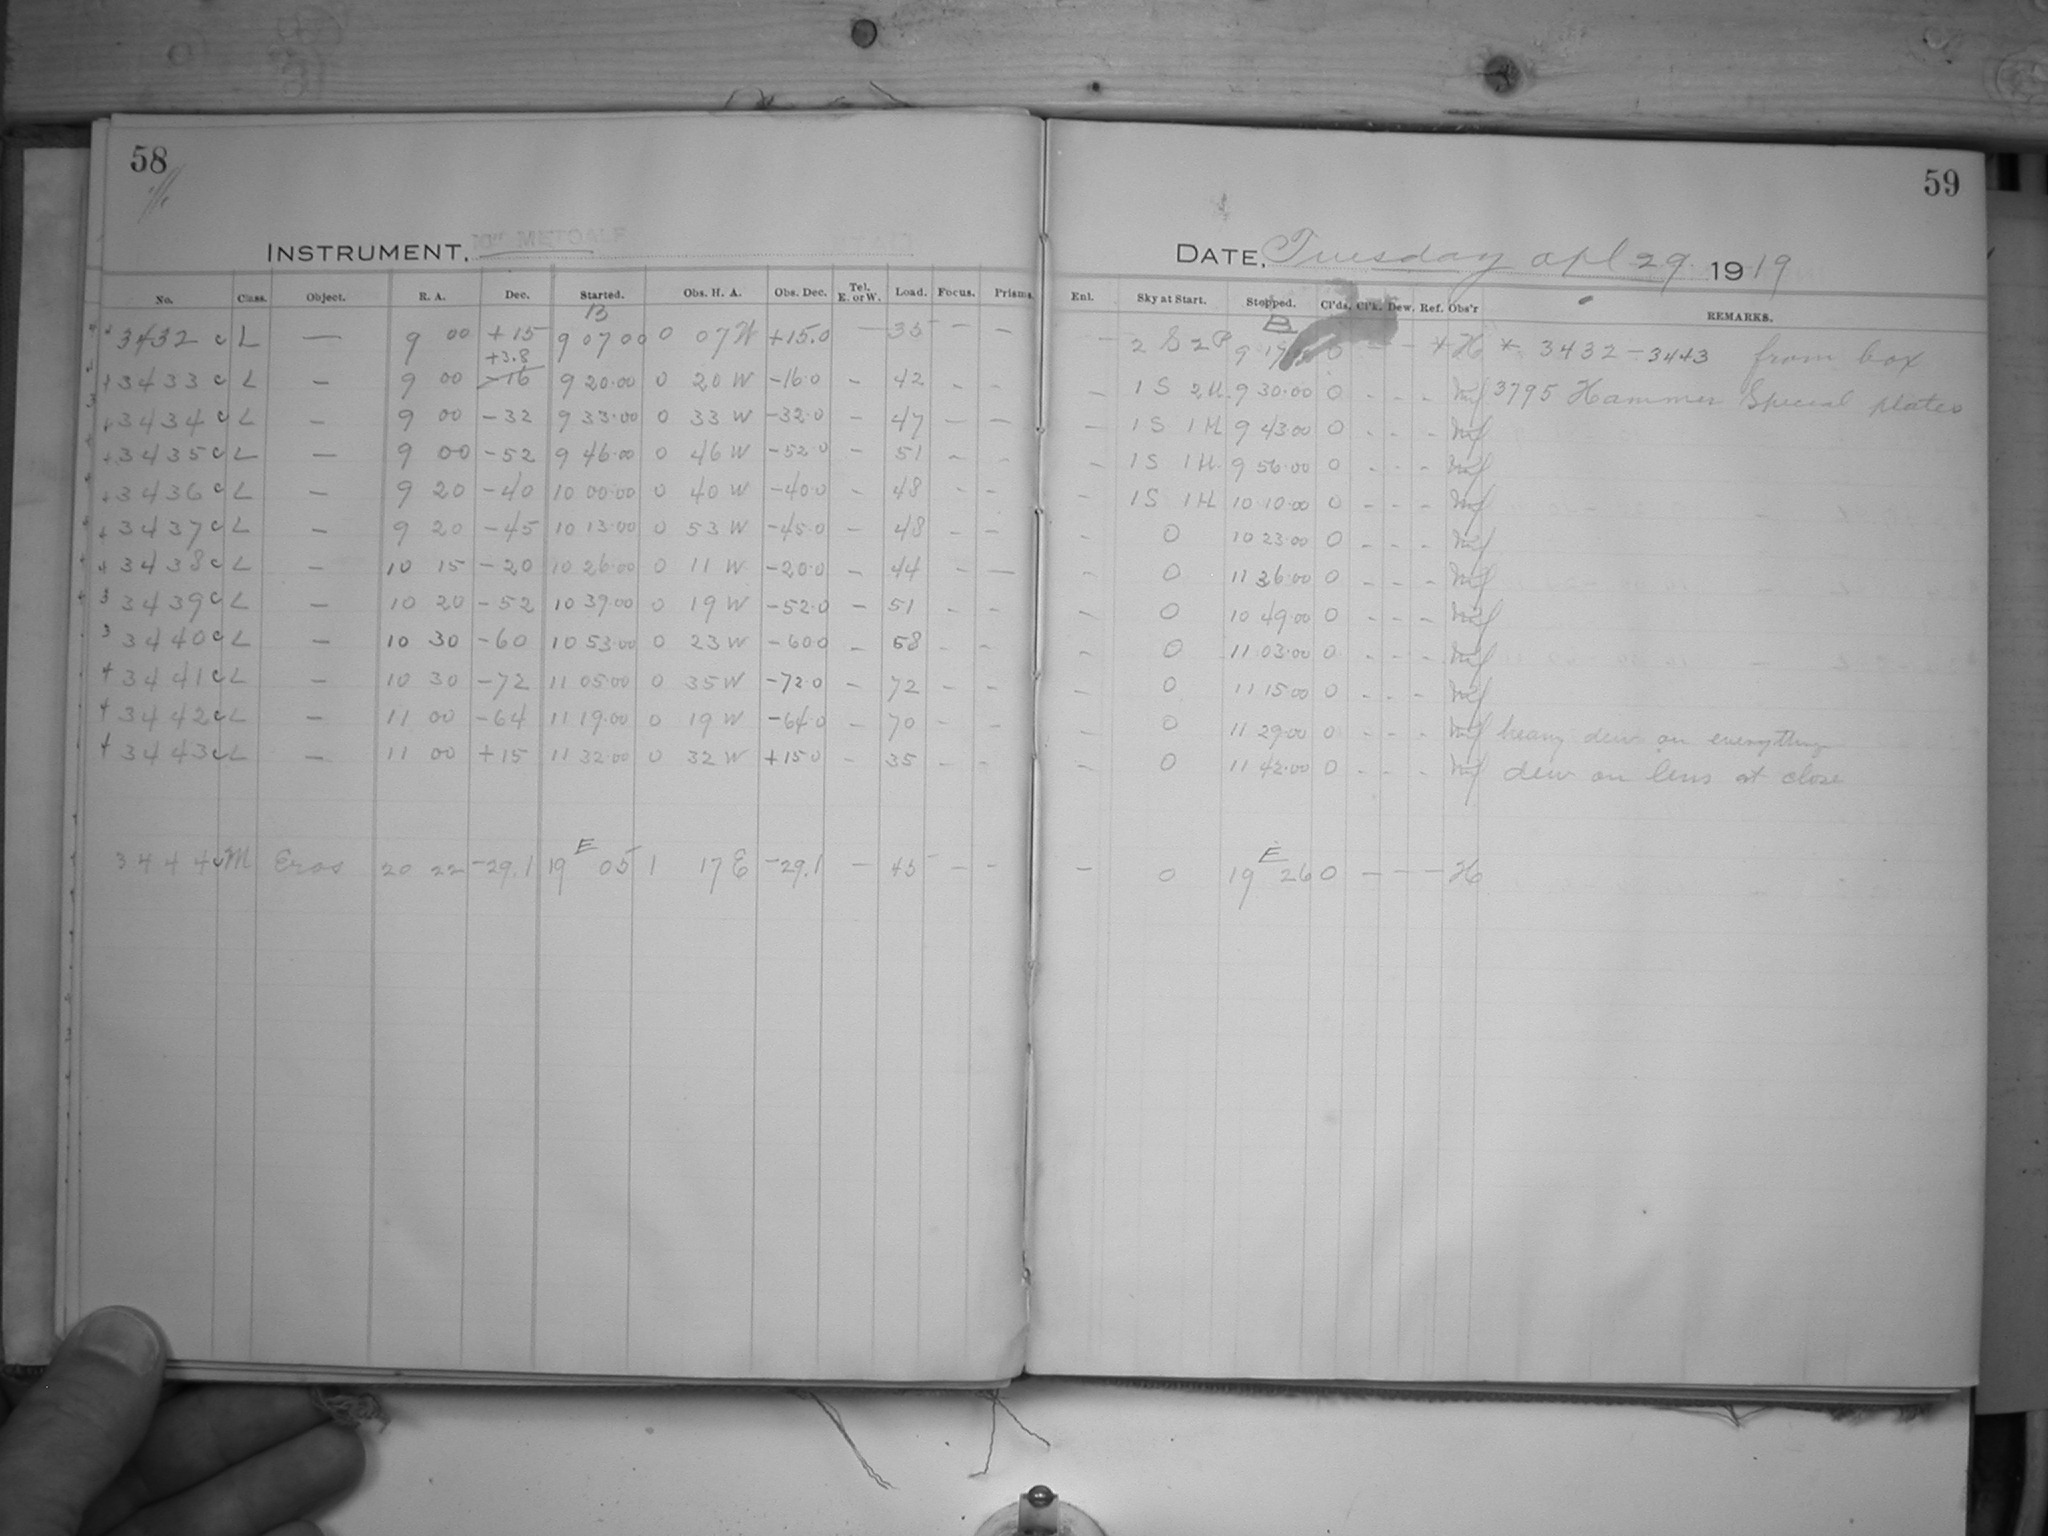 58
59
INSTRUMENT, METCALF
DATE, Tuesday apl 29 1919
No. Class. Object. R. A. Dec. Started. Obs. H. A. Obs. Dec. Tel. E. or W. Load. Focus. Prisms.
Enl. Sky at Start. Stopped. Cl'ds. Cl'k. Dew. Ref. Obs'r REMARKS.
3432 c L — 9 00 +15 9 07 00 0 07 W +15.0 — 35 — — — 2 S 2 P 9 17 0 — — * H * 3432 - 3443 from box
+3.8
3433 c L — 9 00 -16 9 20.00 0 20 W -16.0 — 42 — — — 1 S 2 H 9 30.00 0 - - - 3795 Hammer Special plates
3434 c L — 9 00 -32 9 33.00 0 33 W -32.0 — 47 — — — 1 S 1 H 9 43.00 0 - - -
3435 c L — 9 00 -52 9 46.00 0 46 W -52.0 — 51 - - — 1 S 1 H 9 56.00 0 - - -
3436 c L — 9 20 -40 10 00.00 0 40 W -40.0 — 48 - - - 1 S 1 H 10 10.00 0 - - -
3437 c L — 9 20 -45 10 13.00 0 53 W -45.0 - 48 - - - 0 10 23.00 0 - - -
3438 c L — 10 15 -20 10 26.00 0 11 W -20.0 — 44 - — - 0 11 36.00 0 - - -
3439 c L — 10 20 -52 10 39.00 0 19 W -52.0 — 51 - - - 0 10 49.00 0 - - -
3440 c L — 10 30 -60 10 53.00 0 23 W -60.0 - 68 - - - 0 11 03.00 0 - - -
3441 c L — 10 30 -72 11 05.00 0 35 W -72.0 — 72 - - - 0 11 15.00 0 - - -
3442 c L — 11 00 -64 11 19.00 0 19 W -64.0 - 70 - - - 0 11 29.00 0 - - - heavy dew on everything
3443 c L — 11 00 +15 11 32.00 0 32 W +15.0 - 35 - - - 0 11 42.00 0 - - - dew on lens at close
3444 c M Eros 20 22 -29.1 19 E 05 1 17 E -29.1 — 45 - - — 0 19 E 26 0 — — — H